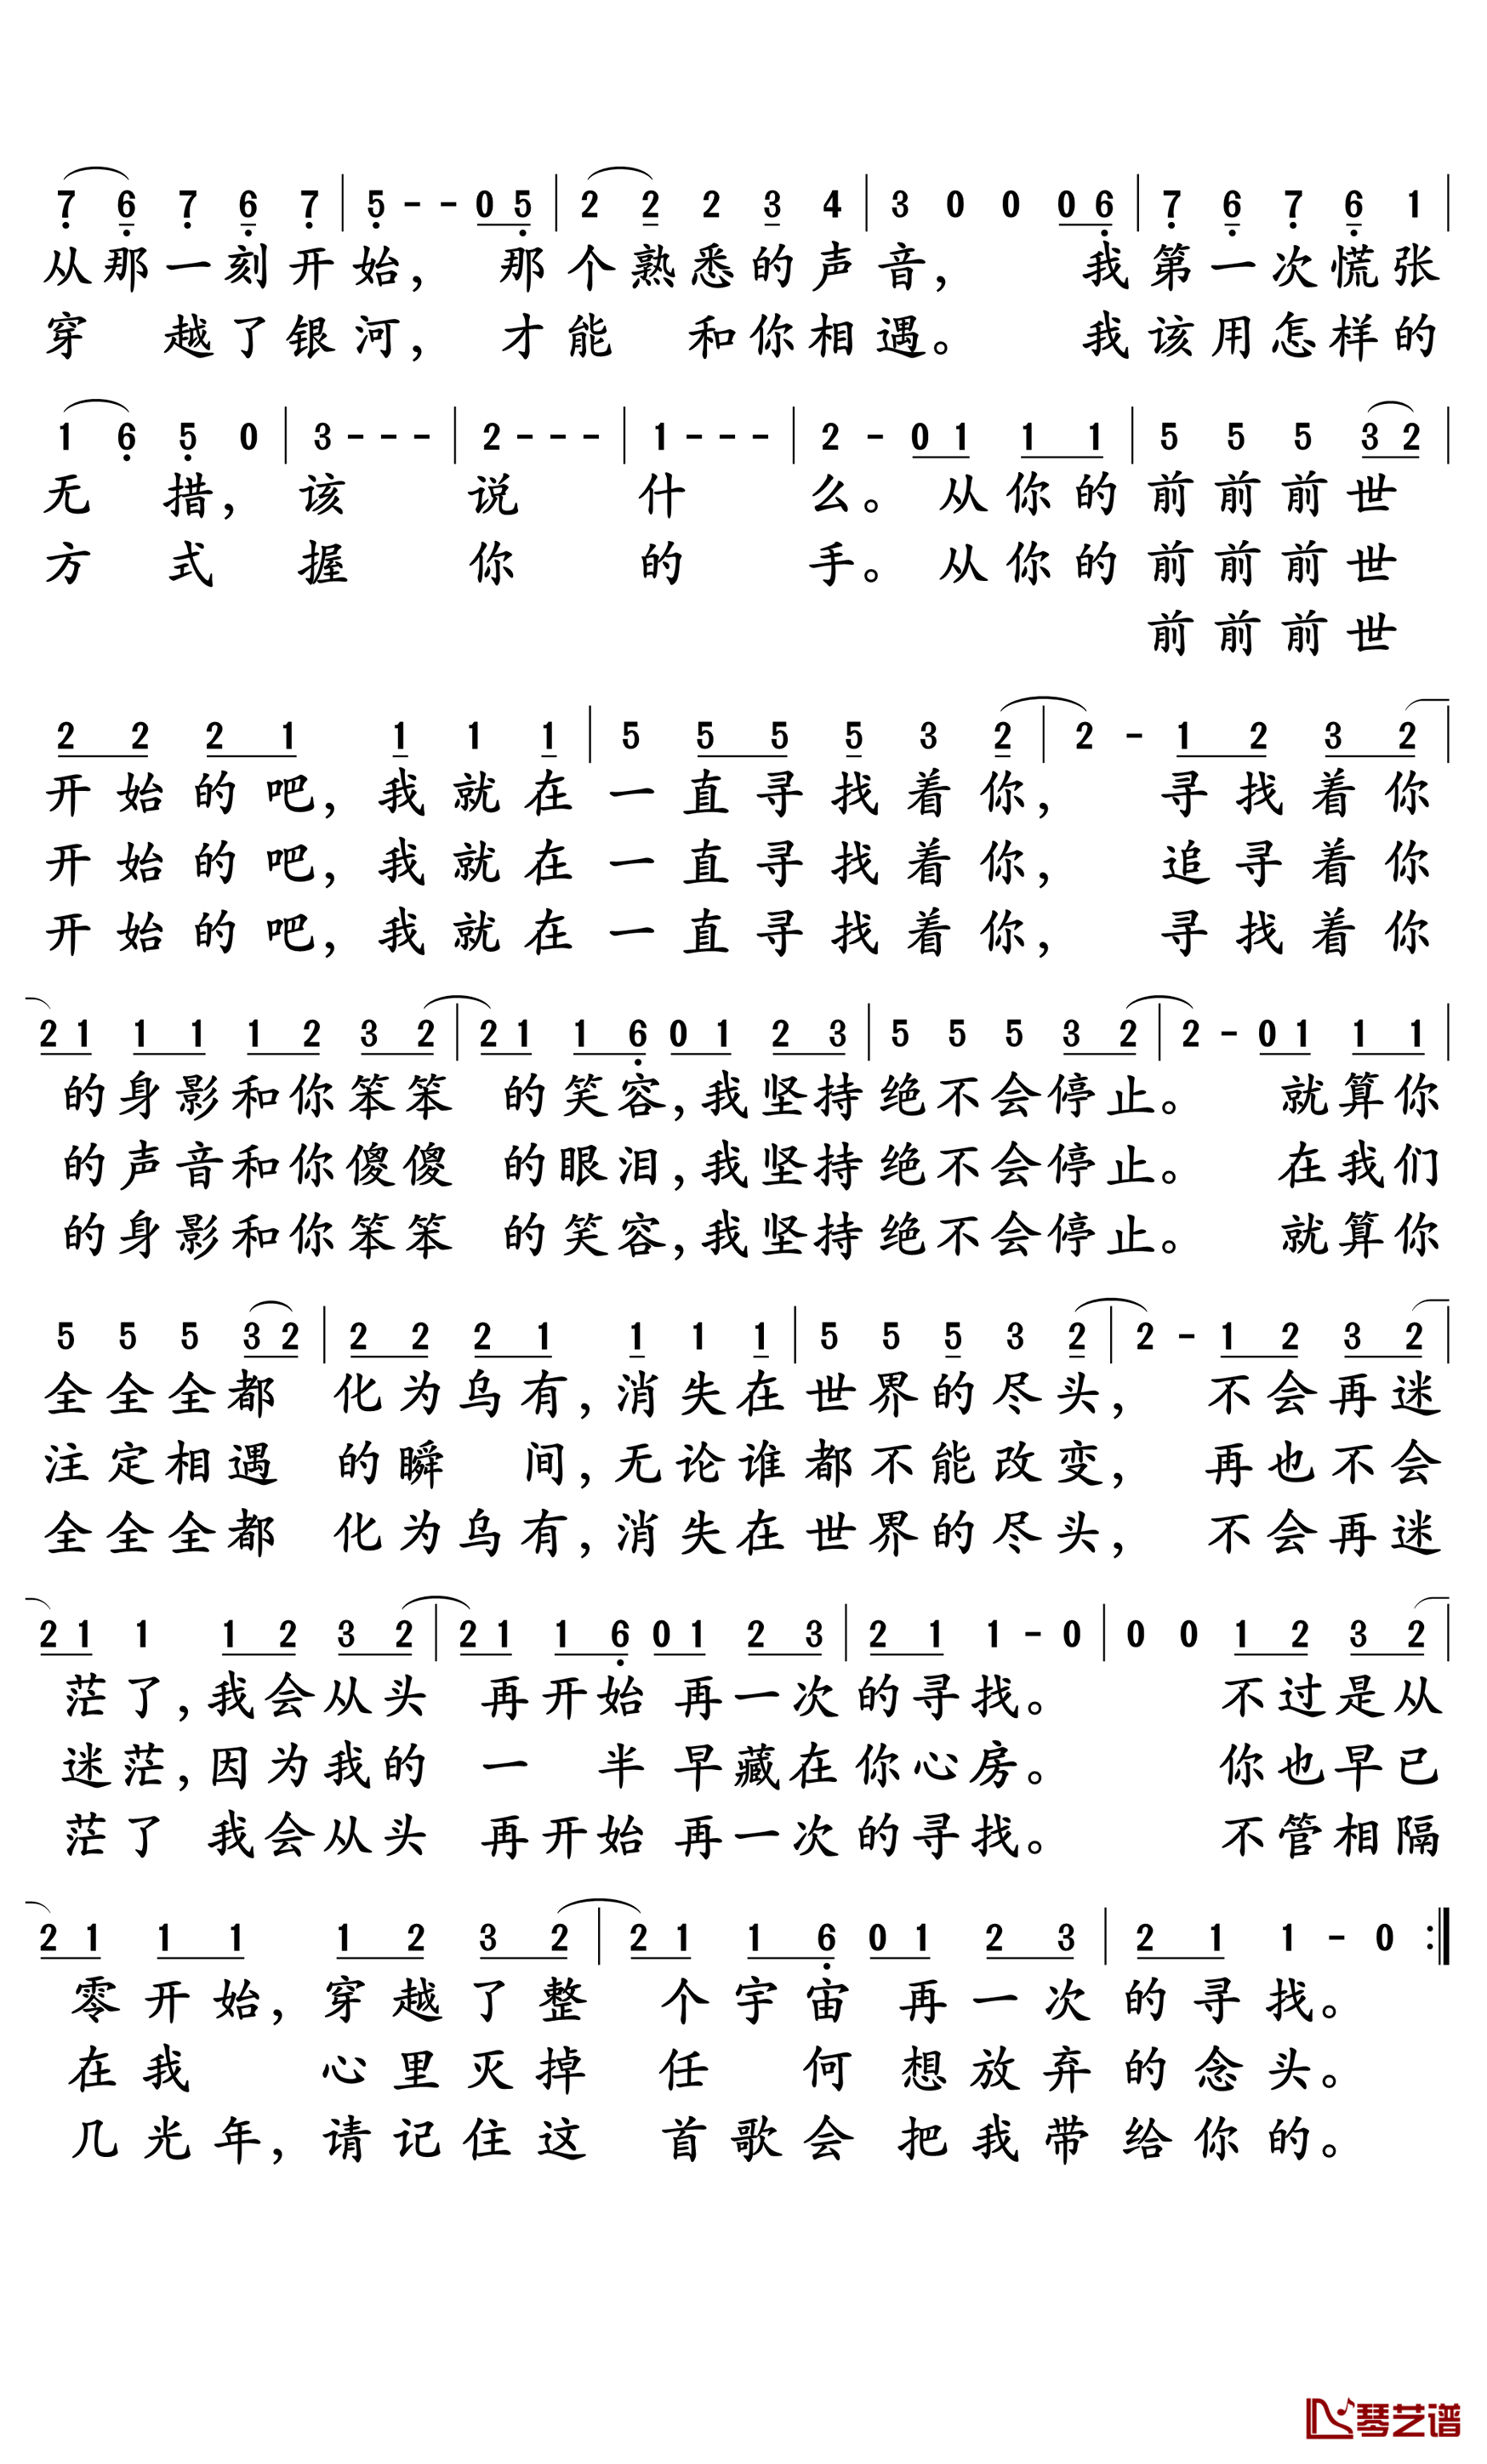 7 6 7 6 7 | 5 - - 0 5 | 2 2 2 3 4 | 3 0 0 0 6 | 7 6 7 6 1 |
从那一刻开始， 那个熟悉的声音， 我第一次慌张
穿 越了银河， 才能 和你相遇。 我该用怎样的
1 6 5 0 | 3 - - - | 2 - - - | 1 - - - | 2 - 0 1 1 1 | 5 5 5 3 2 |
无 措， 该 说 什 么。从你的前前前世
方 式 握 你 的 手。从你的前前前世
前前前世
2 2 2 1 1 1 1 | 5 5 5 5 3 2 | 2 - 1 2 3 2 |
开始的吧，我就在一直寻找着你， 寻找着你
开始的吧，我就在一直寻找着你， 追寻着你
开始的吧，我就在一直寻找着你， 寻找着你
2 1 1 1 1 2 3 2 | 2 1 1 6 0 1 2 3 | 5 5 5 3 2 | 2 - 0 1 1 1 |
的身影和你笨笨 的笑容，我坚持绝不会停止。 就算你
的声音和你傻傻 的眼泪，我坚持绝不会停止。 在我们
的身影和你笨笨 的笑容，我坚持绝不会停止。 就算你
5 5 5 3 2 | 2 2 2 1 1 1 1 | 5 5 5 3 2 | 2 - 1 2 3 2 |
全全全都 化为乌有，消失在世界的尽头， 不会再迷
注定相遇 的瞬 间，无论谁都不能改变， 再也不会
全全全都 化为乌有，消失在世界的尽头， 不会再迷
2 1 1 1 2 3 2 | 2 1 1 6 0 1 2 3 | 2 1 1 - 0 | 0 0 1 2 3 2 |
茫了，我会从头 再开始 再一次的寻找。 不过是从
迷茫，因为我的 一 半 早藏在你心房。 你也早已
茫了 我会从头 再开始 再一次的寻找。 不管相隔
2 1 1 1 1 2 3 2 | 2 1 1 6 0 1 2 3 | 2 1 1 - 0 :|
零开始，穿越了整 个宇宙 再一次的寻找。
在我 心里灭掉 任 何 想放弃的念头。
几光年，请记住这 首歌会 把我带给你的。
琴艺谱